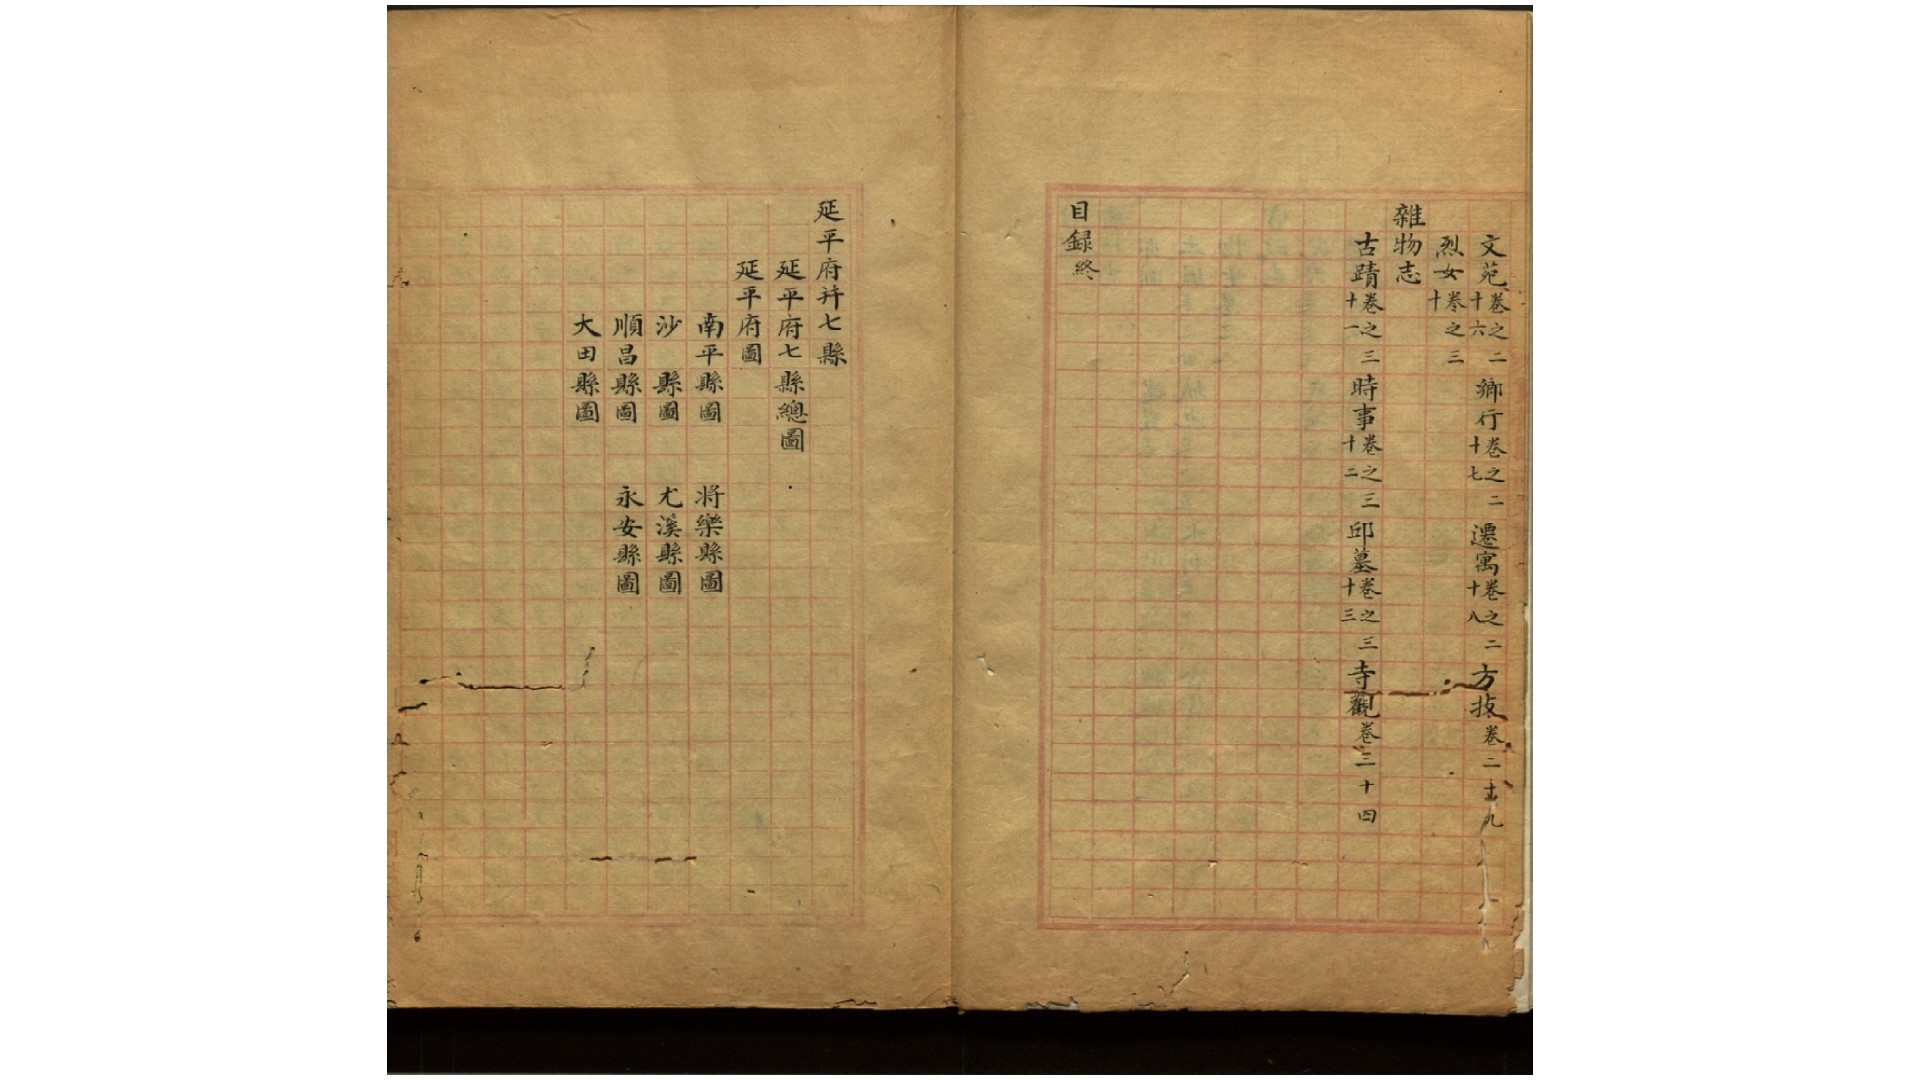 文苑卷之二十六 鄉行卷之二十七 遷寓卷之二十八 方技卷二十九
烈女卷之三十
雜物志
古蹟卷之三十一 時事卷之三十二 邱墓卷之三十三 寺觀卷三十四
目録終
延平府并七縣
延平府七縣總圖
延平府圖
南平縣圖 將樂縣圖
沙 縣圖 尤溪縣圖
順昌縣圖 永安縣圖
大田縣圖